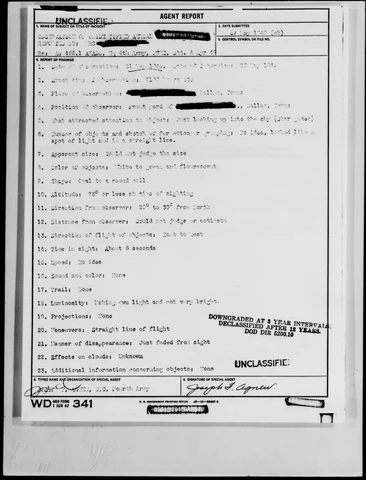 UNCLASSIFIED
AGENT REPORT
1. NAME OF SUBJECT OR TITLE OF INCIDENT
2. DATE SUBMITTED
3. CONTROL SYMBOL OR FILE NO.
4. REPORT OF FINDINGS
1. Date of Observation: Date of Interview:
2. Exact time of observation:
3. Place of observation: Dallas, Texas
4. Position of observer: Front yard of Dallas, Texas
5. What attracted attention to object: Just looking up into the sky (Star gazer)
6. Number of objects and sketch of formation or grouping: No idea, looked like a
spot of light and in a straight line.
7. Apparent size: Could not judge the size
8. Color of objects: White to green and fluorescent
9. Shape: Oval to a round ball
10. Altitude: 75° or less at time of sighting
11. Direction from observer: from North
12. Distance from observer: Could not judge or estimate
13. Direction of flight of objects: East to West
14. Time in sight: About 6 seconds
15. Speed: No idea
16. Sound and odor: None
17. Trail: None
18. Luminosity: Making own light and not very bright.
19. Projections: None
20. Maneuvers: Straight line of flight
21. Manner of disappearance: Just faded from sight
22. Effects on clouds: Unknown
23. Additional information concerning objects: None
DOWNGRADED AT 3 YEAR INTERVALS
DECLASSIFIED AFTER 12 YEARS.
DOD DIR 5200.10
UNCLASSIFIED
5. TYPED NAME AND ORGANIZATION OF SPECIAL AGENT
6. SIGNATURE OF SPECIAL AGENT
CIC, Fourth Army
Joseph F. Agnew
WD AGO FORM 341
1 JUN 47
U. S. GOVERNMENT PRINTING OFFICE